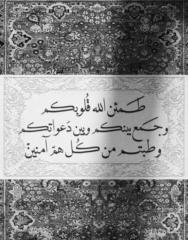 طمئن الله قلوبكم
وجمع بينكم وبين دعواتكم
وطبتم من كل هم آمنين